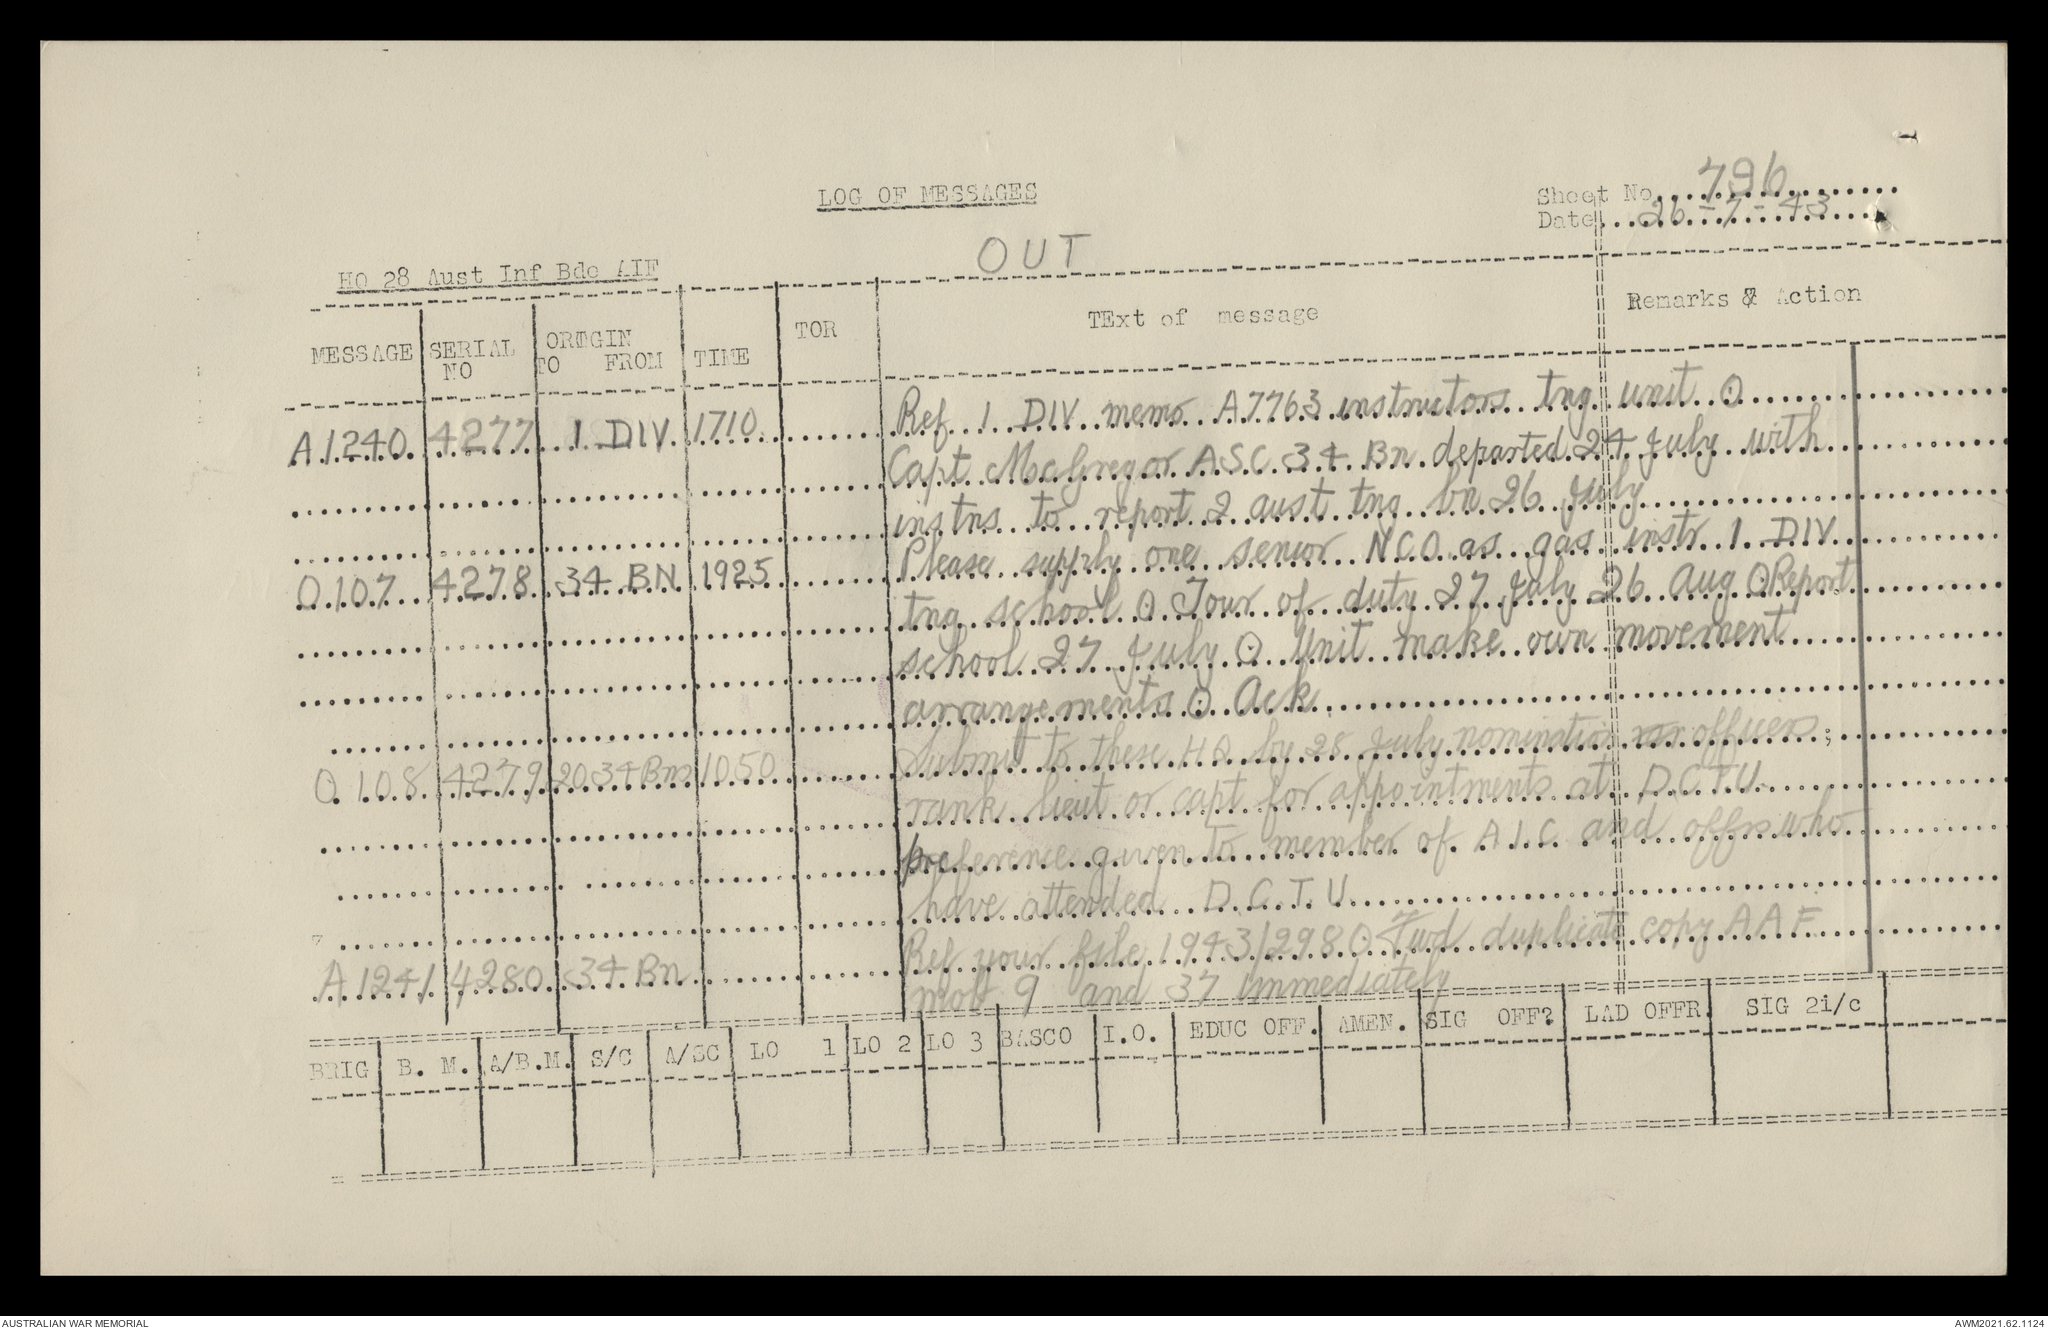 LOG OF MESSAGES
Sheet No. 796
Date 26-7-43
OUT
HQ 28 Aust Inf Bde AIF
MESSAGE SERIAL NO ORIGIN TO FROM TIME TOR TExt of message Remarks & Action
A1240 4277 1 DIV 1710 Ref 1 DIV memo A7763 instructors tng unit O
Capt McGregor ASC 34 Bn departed 24 July with
instns to report 2 aust tng bn 26 July
O107 4278 34 BN 1925 Please supply one senior NCO as gas instr 1 DIV
tng school O Tour of duty 27 July 26 Aug O Report
school 27 July O Unit make own movement
arrangements O Ack
O108 4279 20 34 Bns 1050 Submit to these HQ by 28 July nomination officers;
rank lieut or capt for appointments at D.C.T.U.
preference given to member of A.I.C and offrs who
have attended D.C.T.U
A1241 4280 34 Bn Ref your file 1943/298 O Fwd duplicate copy AAF
mob 9 and 37 immediately
BRIG B. M. A/B.M. S/C A/SC LO 1 LO 2 LO 3 BASCO I.O. EDUC OFF. AMEN. SIG OFF? LAD OFFR. SIG 2i/c
AUSTRALIAN WAR MEMORIAL
AWM2021.62.1124